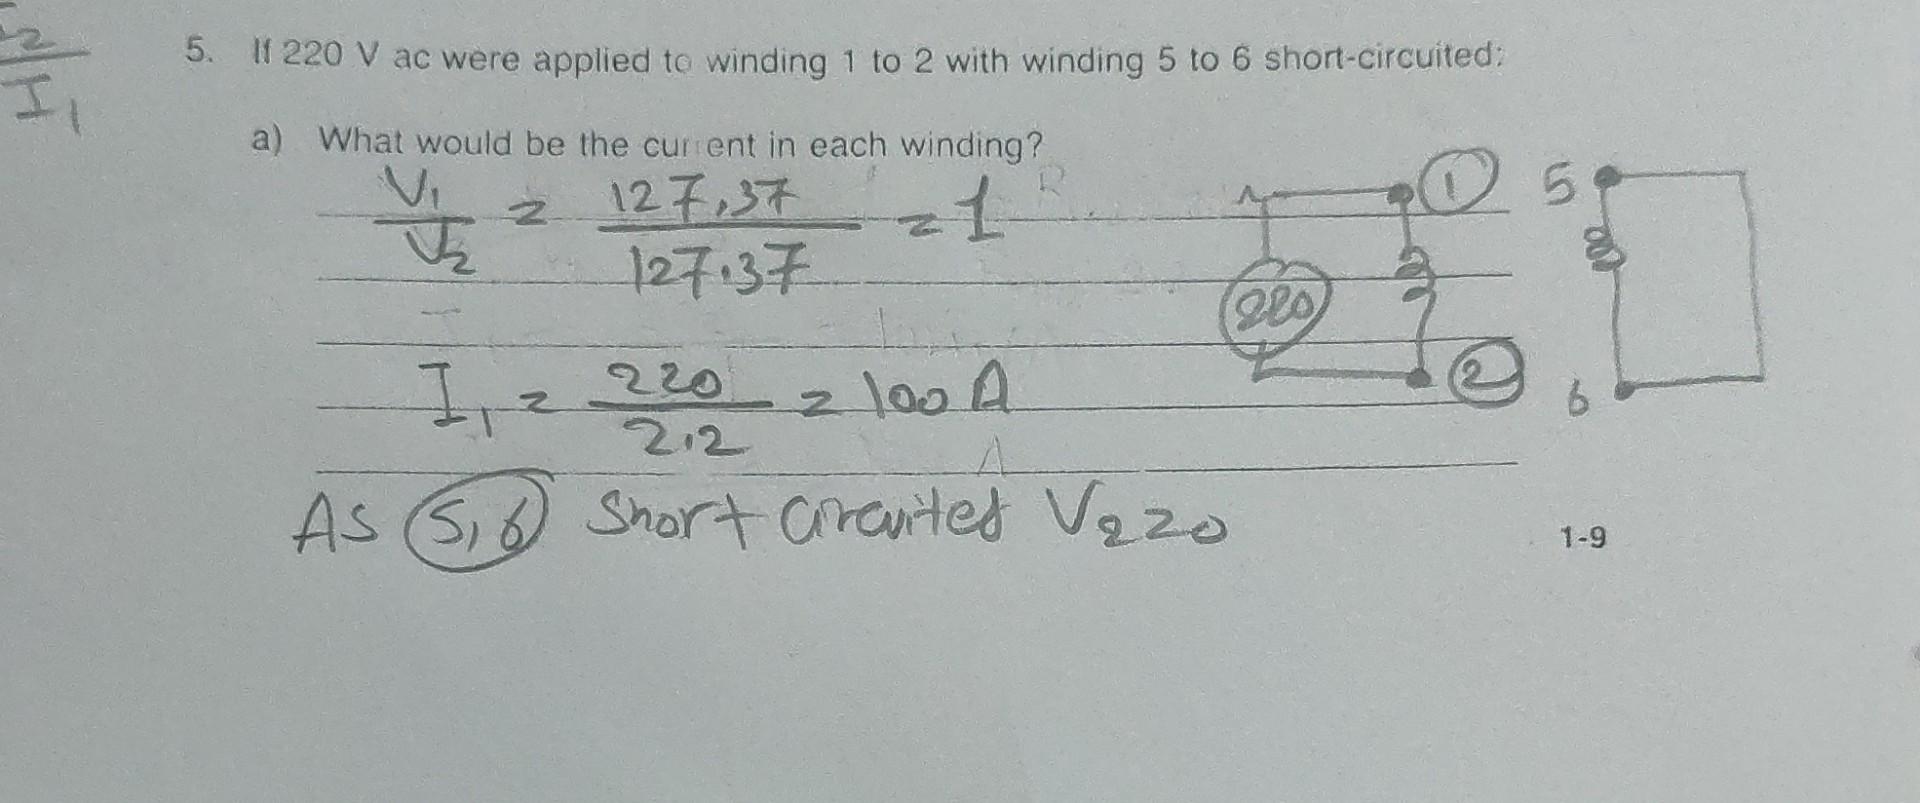 I2
I1
5. If 220 V ac were applied to winding 1 to 2 with winding 5 to 6 short-circuited:
a) What would be the current in each winding?
V1 / V2 = 127,37 / 127.37 = 1
1
5
220
I1 = 220 / 2.2 = 100 A
2
6
As 5,6 Short circuited V220
1-9